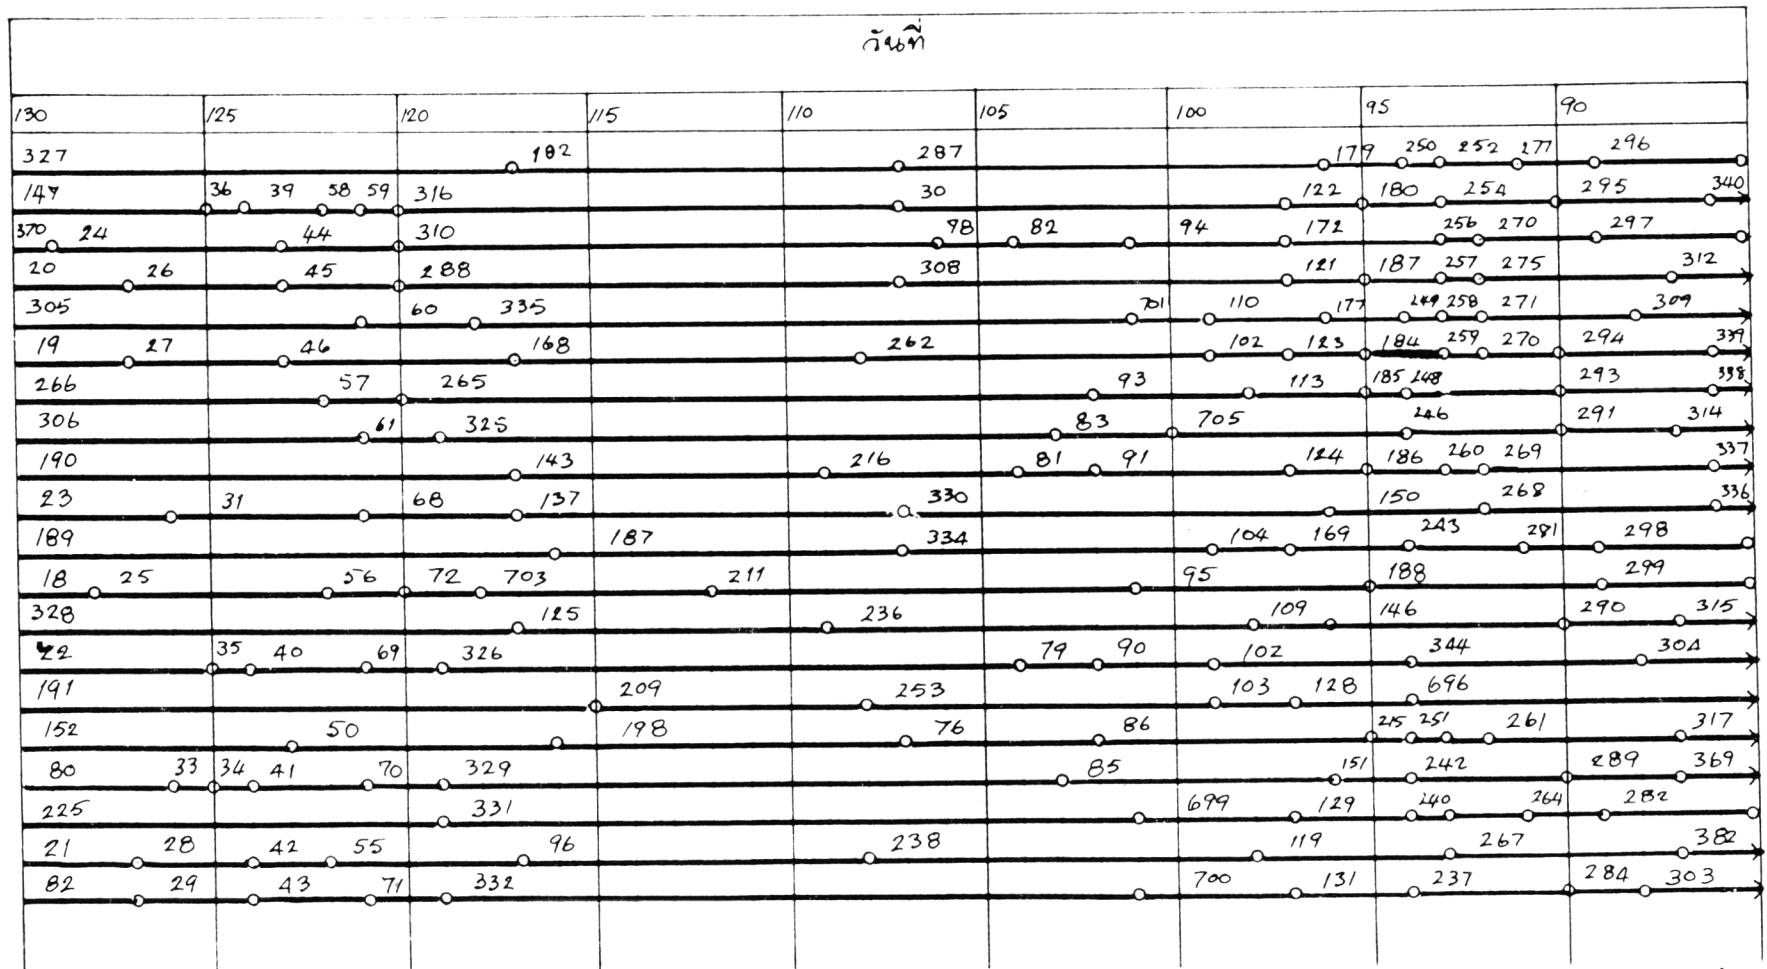 วันที่
130 125 120 115 110 105 100 95 90
327 182 287 179 250 252 277 296
147 36 39 58 59 316 30 122 180 254 295 340
370 24 44 310 98 82 94 172 256 270 297
20 26 45 288 308 121 187 257 275 312
305 60 335 701 110 177 249 258 271 309
19 27 46 168 262 102 123 184 259 270 294 339
266 57 265 93 113 185 248 293 338
306 61 325 83 705 246 291 314
190 143 216 81 91 124 186 260 269 337
23 31 68 137 330 150 268 336
189 187 334 104 169 243 281 298
18 25 56 72 703 211 95 188 299
328 125 236 109 146 290 315
22 35 40 69 326 79 90 102 344 304
191 209 253 103 128 696
152 50 198 76 86 215 251 261 317
80 33 34 41 70 329 85 151 242 289 369
225 331 699 129 240 264 282
21 28 42 55 96 238 119 267 382
82 29 43 71 332 700 131 237 284 303